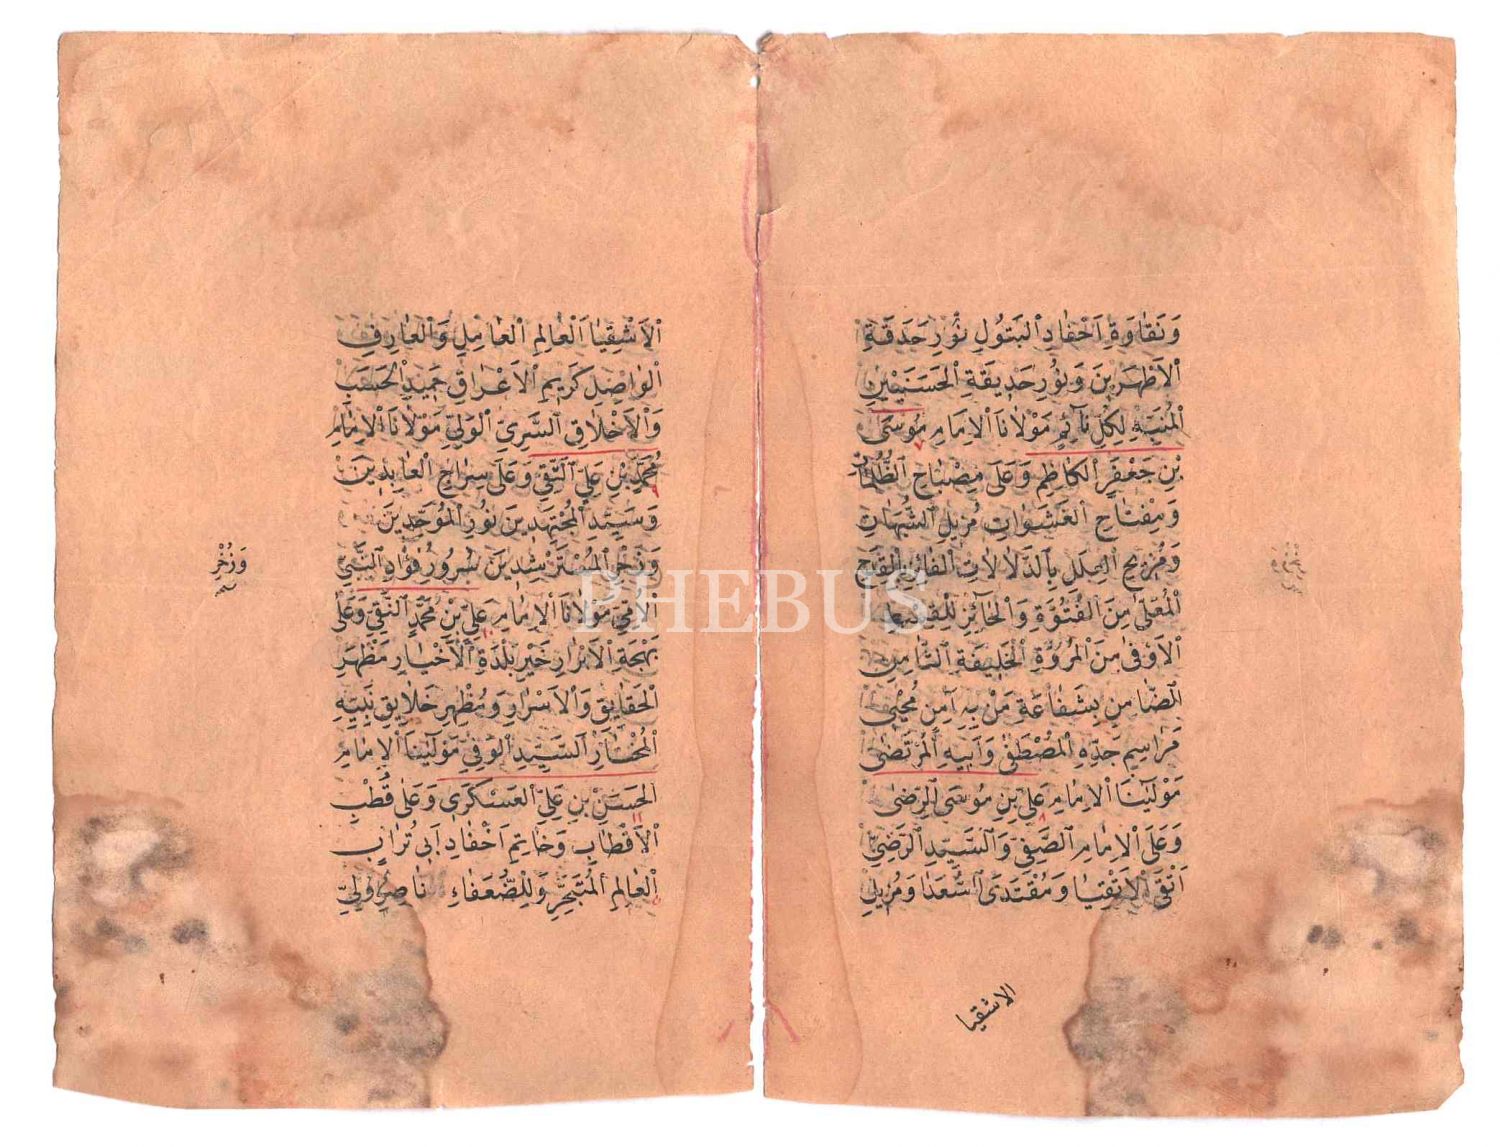 وَنَقَاوَةِ اَحْفَادِ الْبَتُولِ نُوْرِ حَدَقَةِ
الْاَظْهَرِينَ وَنُوْرِ حَدِيقَةِ الْحَسَنَيْنِ
الْمُنَبِّهِ لِكُلِّ نَائِمٍ مَوْلَانَا الْاِمَامِ مُوسَى
٧
بْنِ جَعْفَرِ الْكَاظِمِ وَعَلَى مِصْبَاحِ الظُّلُمَاتِ
وَمِفْتَاحِ الْغَشَوَاتِ مُزِيلِ الشُّبُهَاتِ
وَمُزِيحِ الْعِلَلِ بِالدَّلَالَاتِ الْفَائِزِ بِالْقَدَحِ
الْمُعَلَّى مِنَ الْفُتُوَّةِ وَالْحَائِزِ
الْاَوْفَى مِنَ الْمُرُوَّةِ الْخَلِيفَةِ الثَّامِنِ
الضَّامِنِ بِشَفَاعَةِ مَنْ بِهِ اٰمِنِ مُحْيِى
مَرَاسِمِ جَدِّهِ الْمُصْطَفٰى وَاَبِيهِ الْمُرْتَضٰى
مَوْلَيْنَا الْاِمَامِ عَلِىِّ بْنِ مُوسَى الرِّضٰى
٨
وَعَلَى الْاِمَامِ الصَّفِىِّ وَالسَّيِّدِ الرَّضِىِّ
اَتْقَى الْاَتْقِيَا وَمُقْتَدَى السُّعَدَا وَمُزِيلِ
الاشقيا
الْاَشْقِيَا الْعَالِمِ الْعَامِلِ وَالْعَارِفِ
الْوَاصِلِ كَرِيمِ الْاَعْرَاقِ حَمِيدِ الْحَسَبِ
وَالْاَخْلَاقِ السَّرِىِّ الْوَلِىِّ مَوْلَانَا الْاِمَامِ
مُحَمَّدِ بْنِ عَلِىِّ التَّقِىِّ وَعَلَى سِرَاجِ الْعَابِدِينَ
٩
وَسَيِّدِ الْمُجْتَهِدِينَ نُورِ الْمُوَحِّدِينَ
وَذُخْرِ الْمُسْتَرْشِدِينَ سُرُورِ فُؤَادِ النَّبِىِّ
وَذُخْرِ
الْاُمِّىِّ مَوْلَانَا الْاِمَامِ عَلِىِّ بْنِ مُحَمَّدِ النَّقِىِّ وَعَلَى
١٠
بَهْجَةِ الْاَبْرَارِ خَيْرِ بَلْدَةِ الْاَخْيَارِ مَظْهَرِ
الْحَقَايِقِ وَالْاَسْرَارِ وَمُظْهِرِ خَلَايِقِ نَبِيِّهِ
الْمُخْتَارِ السَّيِّدِ الْوَفِىِّ مَوْلَيْنَا الْاِمَامِ
الْحَسَنِ بْنِ عَلِىِّ الْعَسْكَرِى وَعَلٰى قُطْبِ
١١
الْاَقْطَابِ وَخَاتِمِ اَحْفَادِ اَبِى تُرَابٍ
الْعَالِمِ الْمُتَبَحِّرِ وَلِلضُّعَفَاءِ نَاصِرٍ وَلِىِّ
PHEBUS